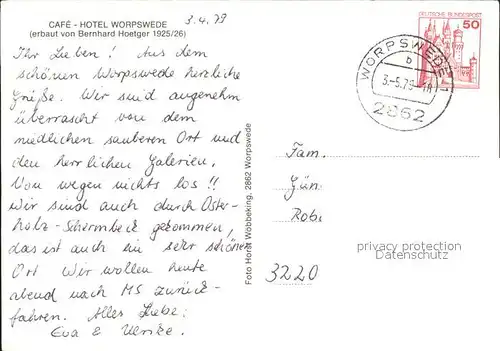 CAFÉ - HOTEL WORPSWEDE
(erbaut von Bernhard Hoetger 1925/26)
3.4.79
Ihr Lieben! Aus dem
schönen Worpswede herzliche
Grüße. Wir sind angenehm
überrascht von dem
niedlichen sauberen Ort und
den herrlichen Galerien,
Von wegen nichts los!!
Wir sind auch durch Oster-
holz-Schermbeck gekommen,
das ist auch ein sehr schöner
Ort Wir wollen heute
abend nach MS zurück-
fahren. Alles Liebe:
Eva & Ulrike.
Foto Horst Wöbbeking, 2862 Worpswede
DEUTSCHE BUNDESPOST
50
WORPSWEDE 1
b
3.-5.79-18
2862
Fam.
Gün
Robe
3220
privacy protection
Datenschutz